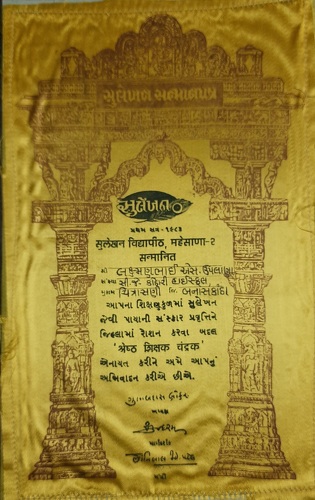 સુલેખન સન્માનપત્ર
સુલેખન
પ્રથમ સત્ર - ૧૯૮૩
સુલેખન વિદ્યાપીઠ, મહેસાણા-૨
સન્માનિત
શ્રી લક્ષ્મણભાઈ એસ.
સી. જે. કોઠારી હાઈસ્કૂલ
મુકામ ચિત્રાસણી જિ. બનાસકાંઠા
આપના શિક્ષણકુળમાં સુલેખન
જેવી પાયાની સંસ્કાર પ્રવૃત્તિને
જિલ્લામાં રોશન કરવા બદલ
'શ્રેષ્ઠ શિક્ષક ચંદ્રક'
એનાયત કરીને અમે આપનું
અભિવાદન કરીએ છીએ.
મંત્રી